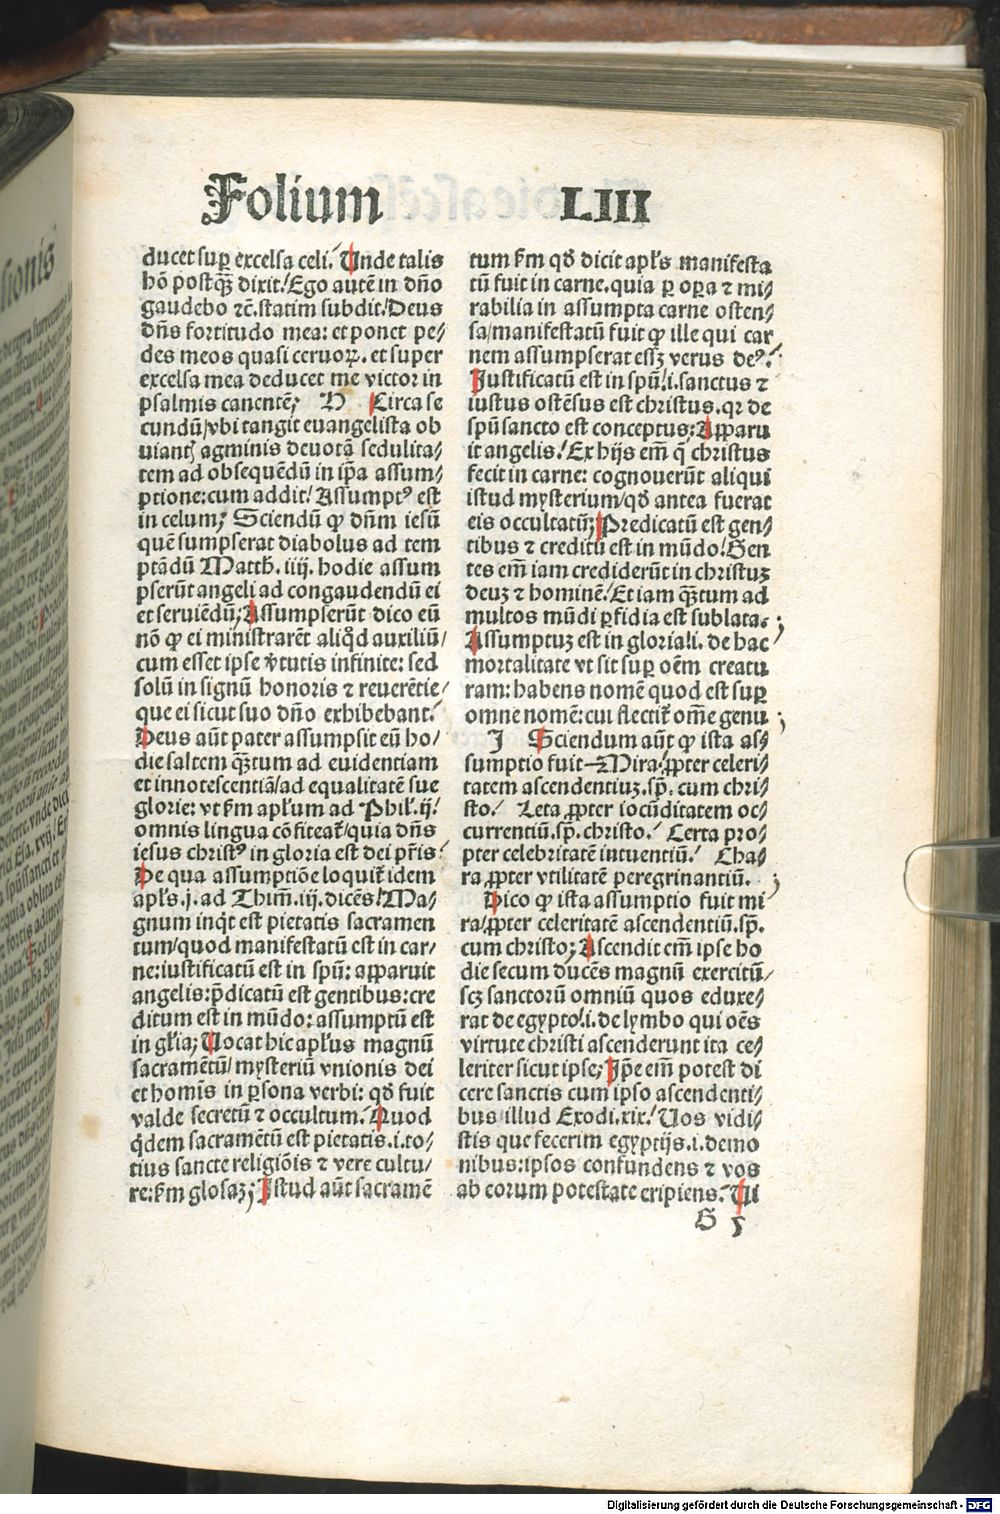 Folium LIII
ducet sup̱ excelsa celi. Unde talis
hō postq̄ꝫ dixit. Ego autē in dn̄o
gaudebo ⁊c̄. statim subdit. Deus
dn̄s fortitudo mea: et ponet pe⸗
des meos quasi ceruoꝝ. et super
excelsa mea deducet me victor in
psalmis canentē; H Circa se
cundū/vbi tangit euangelista ob
uiantꝭ agminis deuotā sedulita⸗
tem ad obsequēdū in ip̄a assum⸗
ptione: cum addit/ Assumptꝰ est
in celum; Sciendū ꝙ dn̄m iesū
quē sumpserat diabolus ad tem
ptādū Matth. iiij. hodie assum
pserūt angeli ad congaudendū ei
et seruiēdū; Assumpserūt dico eū
nō ꝙ ei ministrarēt aliqd̄ auxiliū/
cum esset ipse v̄tutis infinite: sed
solū in signū honoris ⁊ reuerētie/
que ei sicut suo dn̄o exhibebant.
Deus aūt pater assumpsit eū ho/
die saltem qꝫtum ad euidentiam
et innotescentiā/ad equalitatē sue
glorie: vt ẜm apl'um ad Phil'. ij.
omnis lingua cōfiteat̄/quia dn̄s
iesus christꝰ in gloria est dei pr̄is.
De qua assumptiōe loquit̄ idem
apl's. j. ad Thim̄. iij. dicēs/ Ma⸗
gnum inqͥt est pietatis sacramen
tum/quod manifestatū est in car⸗
ne: iustificatū est in spū: apparuit
angelis: p̄dicatū est gentibus: cre
ditum est in mūdo: assumptū est
in gl'ia; Uocat hic apl'us magnū
sacramētū/ mysteriū vnionis dei
et homīs in ꝑsona verbi: qd̄ fuit
valde secretū ⁊ occultum. Quod
qͥdem sacramētū est pietatis .i. to⸗
tius sancte religiōis ⁊ vere cultu/
re: ẜm glosaꝫ; Istud aūt sacramē
tum ẜm qd̄ dicit apl's manifesta
tū fuit in carne. quia ꝑ oꝑa ⁊ mi⸗
rabilia in assumpta carne osten⸗
sa/manifestatū fuit ꝙ ille qui car
nem assumpserat esseꝫ verus deꝰ.
Iustificatū est in spū/.i. sanctus ⁊
iustus ostēsus est christus. qꝛ de
spū sancto est conceptus; Apparu
it angelis. Ex hijs em̄ q̄ christus
fecit in carne: cognouerūt aliqui
istud mysterium/qd̄ antea fuerat
eis occultatū; Predicatū est gen⸗
tibus ⁊ creditū est in mūdo. Gen
tes em̄ iam crediderūt in christuꝫ
deuꝫ ⁊ hominē. Et iam qꝫtum ad
multos mūdi ꝑfidia est sublata.;
Assumptuꝫ est in gloria .i. de hac
mortalitate vt sit sup̱ oēm creatu
ram: habens nomē quod est sup̱
omne nomē: cui flectit̄ om̄e genu;
J Sciendum aūt ꝙ ista as⸗
sumptio fuit—Mira ꝓpter celeri⸗
tatem ascendentiuꝫ. sp̄. cum chri⸗
sto. Leta ꝓpter iocūditatem oc⸗
currentiū. sp̄. christo. Certa pro⸗
pter celebritatē intuentiū. Cha⸗
ra ꝓpter vtilitatē peregrinantiū.;
Dico ꝙ ista assumptio fuit mi
ra/ꝓpter celeritatē ascendentiū. sp̄.
cum christo; Ascendit em̄ ipse ho
die secum ducēs magnū exercitū/
scꝫ sanctorū omniū quos eduxe⸗
rat de egypto/.i. de lymbo qui oēs
virtute christi ascenderunt ita ce⸗
leriter sicut ipse; Ip̄e em̄ potest di
cere sanctis cum ipso ascendenti⸗
bus illud Exodi. xix. Uos vidi⸗
stis que fecerim egyptijs .i. demo
nibus: ipsos confundens ⁊ vos
ab eorum potestate eripiens. Ui
G 5
Digitalisierung gefördert durch die Deutsche Forschungsgemeinschaft - DFG